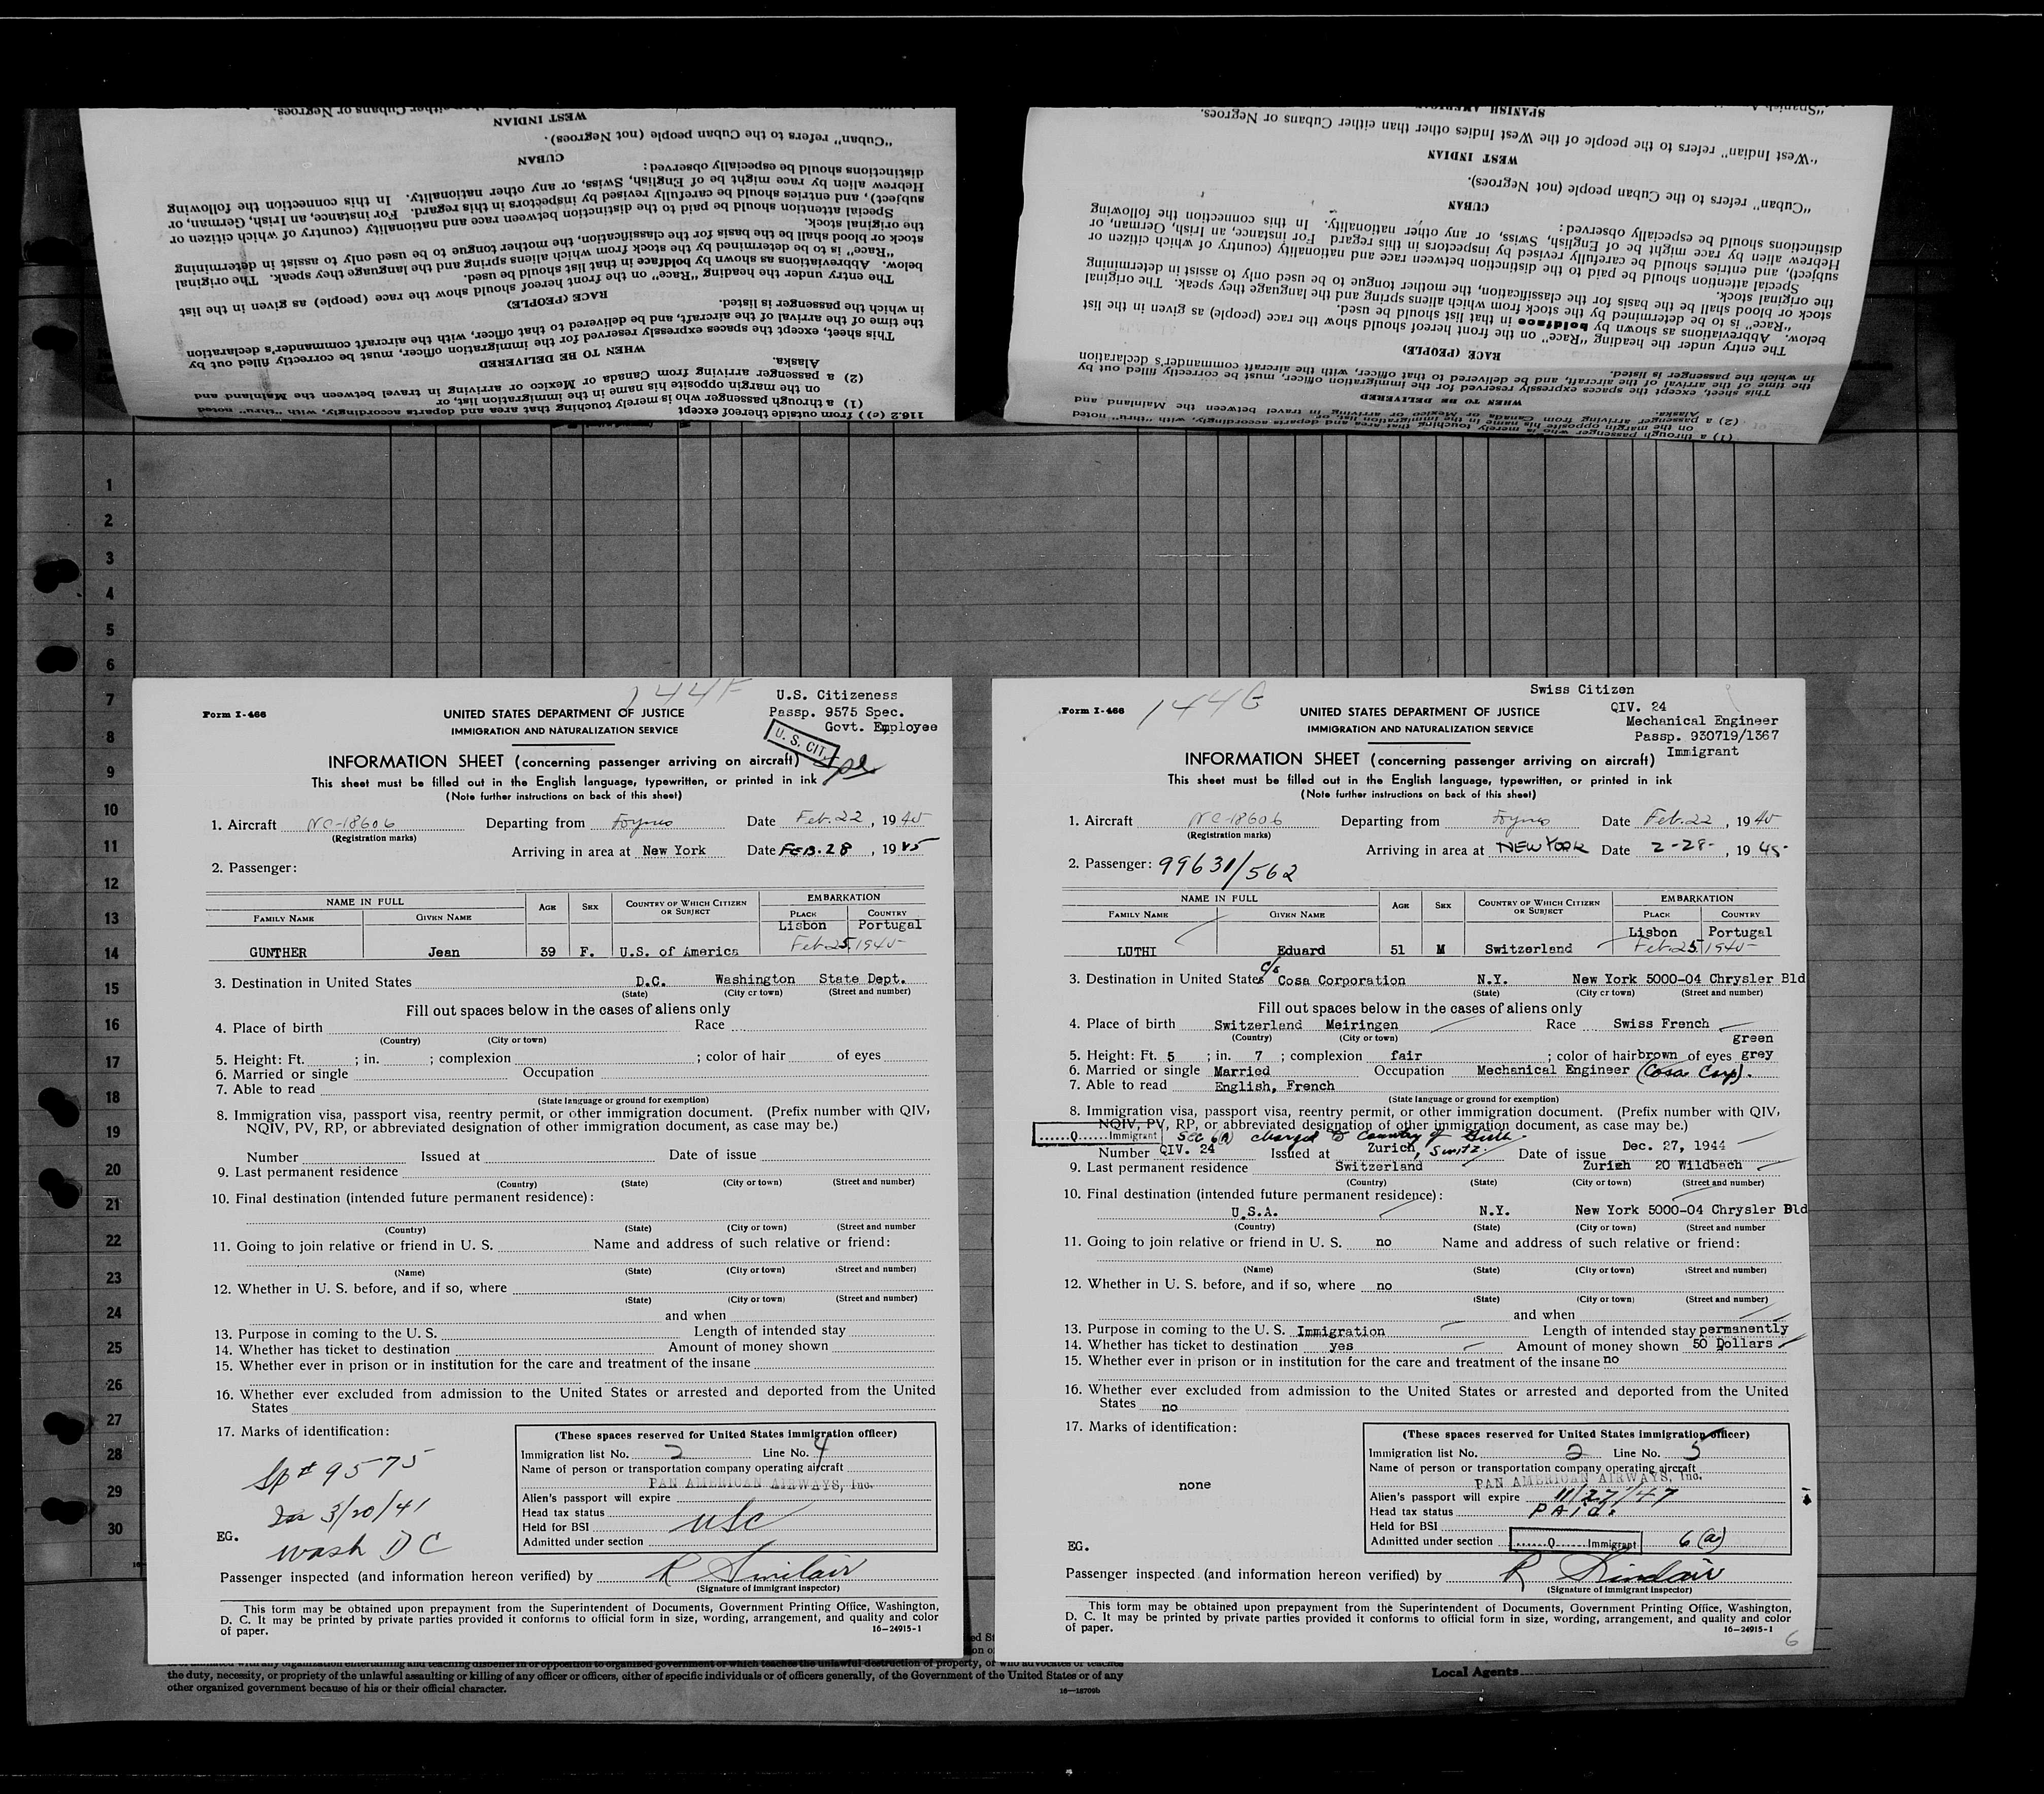 "Cuban" refers to the people of the Cuban people (not Negroes).
WEST INDIAN
"Cuban" refers to the Cuban people (not Negroes).
CUBAN
distinctions should be especially observed:
Hebrew alien by race might be of English, Swiss, or any other nationality. In this connection the following
subject), and entries should be carefully revised by inspectors in this regard. For instance, an Irish, German, or
Special attention should be paid to the distinction between race and nationality (country of which citizen or
the original stock.
stock or blood shall be the basis for the classification, the mother tongue to be used only to assist in determining
"Race" is to be determined by the stock from which aliens spring and the language they speak. The original
below. Abbreviations as shown by boldface in that list should be used.
The entry under the heading "Race" on the front hereof should show the race (people) as given in the list
RACE (PEOPLE)
in which the passenger is listed.
the time of the arrival of the aircraft, and be delivered to that officer, with the aircraft commander's declaration
This sheet, except the spaces expressly reserved for the immigration officer, must be correctly filled out by
WHEN TO BE DELIVERED
Alaska.
(2) a passenger arriving from Canada or Mexico or arriving in travel between the Mainland and
on the margin opposite his name in the immigration list, or
(1) a through passenger who is merely touching that area and departs accordingly, with "thru" noted
116.2 (c)) from outside thereof except
SPANISH AMERICAN
"West Indian" refers to the people of the West Indies other than either Cubans or Negroes.
WEST INDIAN
"Cuban" refers to the Cuban people (not Negroes).
CUBAN
distinctions should be especially observed:
Hebrew alien by race might be of English, Swiss, or any other nationality. In this connection the following
subject), and entries should be carefully revised by inspectors in this regard For instance, an Irish, German, or
Special attention should be paid to the distinction between race and nationality (country of which citizen or
the original stock.
stock or blood shall be the basis for the classification, the mother tongue to be used only to assist in determining
"Race" is to be determined by the stock from which aliens spring and the language they speak. The original
below. Abbreviations as shown by boldface in that list should be used.
The entry under the heading "Race" on the front hereof should show the race (people) as given in the list
RACE (PEOPLE)
in which the passenger is listed.
the time of the arrival of the aircraft, and be delivered to that officer, with the aircraft commander's declaration
This sheet, except the spaces expressly reserved for the immigration officer, must be correctly filled out by
WHEN TO BE DELIVERED
Alaska.
(2) a passenger arriving from Canada or Mexico or arriving in travel between the Mainland and
on the margin opposite his name in the immigration list, or
(1) a through passenger who is merely touching that area and departs accordingly, with "thru" noted
1
2
3
4
5
6
7
8
9
10
11
12
13
14
15
16
17
18
19
20
21
22
23
24
25
26
27
28
29
30
144F
U.S. Citizeness
Passp. 9575 Spec.
Govt. Employee
U. S. CIT.
Form I-466
UNITED STATES DEPARTMENT OF JUSTICE
IMMIGRATION AND NATURALIZATION SERVICE
INFORMATION SHEET (concerning passenger arriving on aircraft)
This sheet must be filled out in the English language, typewritten, or printed in ink
(Note further instructions on back of this sheet)
1. Aircraft NC-18606 Departing from Foynes Date Feb. 22, 1945
(Registration marks)
Arriving in area at New York Date FEB. 28, 1945
2. Passenger:
NAME IN FULL AGE SEX COUNTRY OF WHICH CITIZEN OR SUBJECT EMBARKATION
FAMILY NAME GIVEN NAME PLACE COUNTRY
Lisbon Portugal
GUNTHER Jean 39 F. U.S. of America Feb 25, 1945
3. Destination in United States D.C. Washington State Dept.
(State) (City or town) (Street and number)
Fill out spaces below in the cases of aliens only
4. Place of birth Race
(Country) (City or town)
5. Height: Ft. ; in. ; complexion ; color of hair of eyes
6. Married or single Occupation
7. Able to read
(State language or ground for exemption)
8. Immigration visa, passport visa, reentry permit, or other immigration document. (Prefix number with QIV,
NQIV, PV, RP, or abbreviated designation of other immigration document, as case may be.)
Number Issued at Date of issue
9. Last permanent residence
(Country) (State) (City or town) (Street and number)
10. Final destination (intended future permanent residence):
(Country) (State) (City or town) (Street and number
11. Going to join relative or friend in U. S. Name and address of such relative or friend:
(Name) (State) (City or town) (Street and number)
12. Whether in U. S. before, and if so, where
(State) (City or town) (Street and number)
and when
13. Purpose in coming to the U. S. Length of intended stay
14. Whether has ticket to destination Amount of money shown
15. Whether ever in prison or in institution for the care and treatment of the insane
16. Whether ever excluded from admission to the United States or arrested and deported from the United
States
17. Marks of identification:
Sp # 9575
Iss 3/20/41
Wash DC
EG.
(These spaces reserved for United States immigration officer)
Immigration list No. 2 Line No. 4
Name of person or transportation company operating aircraft
PAN AMERICAN AIRWAYS, Inc.
Alien's passport will expire
Head tax status
Held for BSI USC
Admitted under section
Passenger inspected (and information hereon verified) by R Sinclair
(Signature of immigrant inspector)
This form may be obtained upon prepayment from the Superintendent of Documents, Government Printing Office, Washington,
D. C. It may be printed by private parties provided it conforms to official form in size, wording, arrangement, and quality and color
of paper.
16—24915-1
144G
Swiss Citizen
QIV. 24
Mechanical Engineer
Passp. 930719/1367
Immigrant
Form I-466
UNITED STATES DEPARTMENT OF JUSTICE
IMMIGRATION AND NATURALIZATION SERVICE
INFORMATION SHEET (concerning passenger arriving on aircraft)
This sheet must be filled out in the English language, typewritten, or printed in ink
(Note further instructions on back of this sheet)
1. Aircraft NC-18606 Departing from Foynes Date Feb. 22, 1945
(Registration marks)
Arriving in area at NEW YORK Date 2-28-, 1945-
2. Passenger: 99631/562
NAME IN FULL AGE SEX COUNTRY OF WHICH CITIZEN OR SUBJECT EMBARKATION
FAMILY NAME GIVEN NAME PLACE COUNTRY
Lisbon Portugal
LUTHI Eduard 51 M Switzerland Feb 25, 1945
3. Destination in United States c/o Cosa Corporation N.Y. New York 5000-04 Chrysler Bld
(State) (City or town) (Street and number)
Fill out spaces below in the cases of aliens only
4. Place of birth Switzerland Meiringen Race Swiss French
(Country) (City or town) green
5. Height: Ft. 5 ; in. 7 ; complexion fair ; color of hair brown of eyes grey
6. Married or single Married Occupation Mechanical Engineer (Cosa Corp).
7. Able to read English, French
(State language or ground for exemption)
8. Immigration visa, passport visa, reentry permit, or other immigration document. (Prefix number with QIV,
NQIV, PV, RP, or abbreviated designation of other immigration document, as case may be.)
......Q...... Immigrant Sec 6(A) charged to Country of Birth
Number QIV. 24 Issued at Zurich, Switz. Date of issue Dec. 27, 1944
9. Last permanent residence Switzerland Zurich 20 Wildbach
(Country) (State) (City or town) (Street and number)
10. Final destination (intended future permanent residence):
U.S.A. N.Y. New York 5000-04 Chrysler Bld
(Country) (State) (City or town) (Street and number
11. Going to join relative or friend in U. S. no Name and address of such relative or friend:
(Name) (State) (City or town) (Street and number)
12. Whether in U. S. before, and if so, where no
(State) (City or town) (Street and number)
and when
13. Purpose in coming to the U. S. Immigration Length of intended stay permanently
14. Whether has ticket to destination yes Amount of money shown 50 Dollars
15. Whether ever in prison or in institution for the care and treatment of the insane no
16. Whether ever excluded from admission to the United States or arrested and deported from the United
States no
17. Marks of identification:
none
EG.
(These spaces reserved for United States immigration officer)
Immigration list No. 2 Line No. 5
Name of person or transportation company operating aircraft
PAN AMERICAN AIRWAYS, Inc.
Alien's passport will expire 11/27/47
Head tax status PAid.
Held for BSI
Admitted under section ......Q...... Immigrant 6(a)
Passenger inspected (and information hereon verified) by R Sinclair
(Signature of immigrant inspector)
This form may be obtained upon prepayment from the Superintendent of Documents, Government Printing Office, Washington,
D. C. It may be printed by private parties provided it conforms to official form in size, wording, arrangement, and quality and color
of paper.
16—24915-1
6
the duty, necessity, or propriety of the unlawful assaulting or killing of any officer or officers, either of specific individuals or of officers generally, of the Government of the United States or of any
other organized government because of his or their official character.
16—18709b
Local Agents